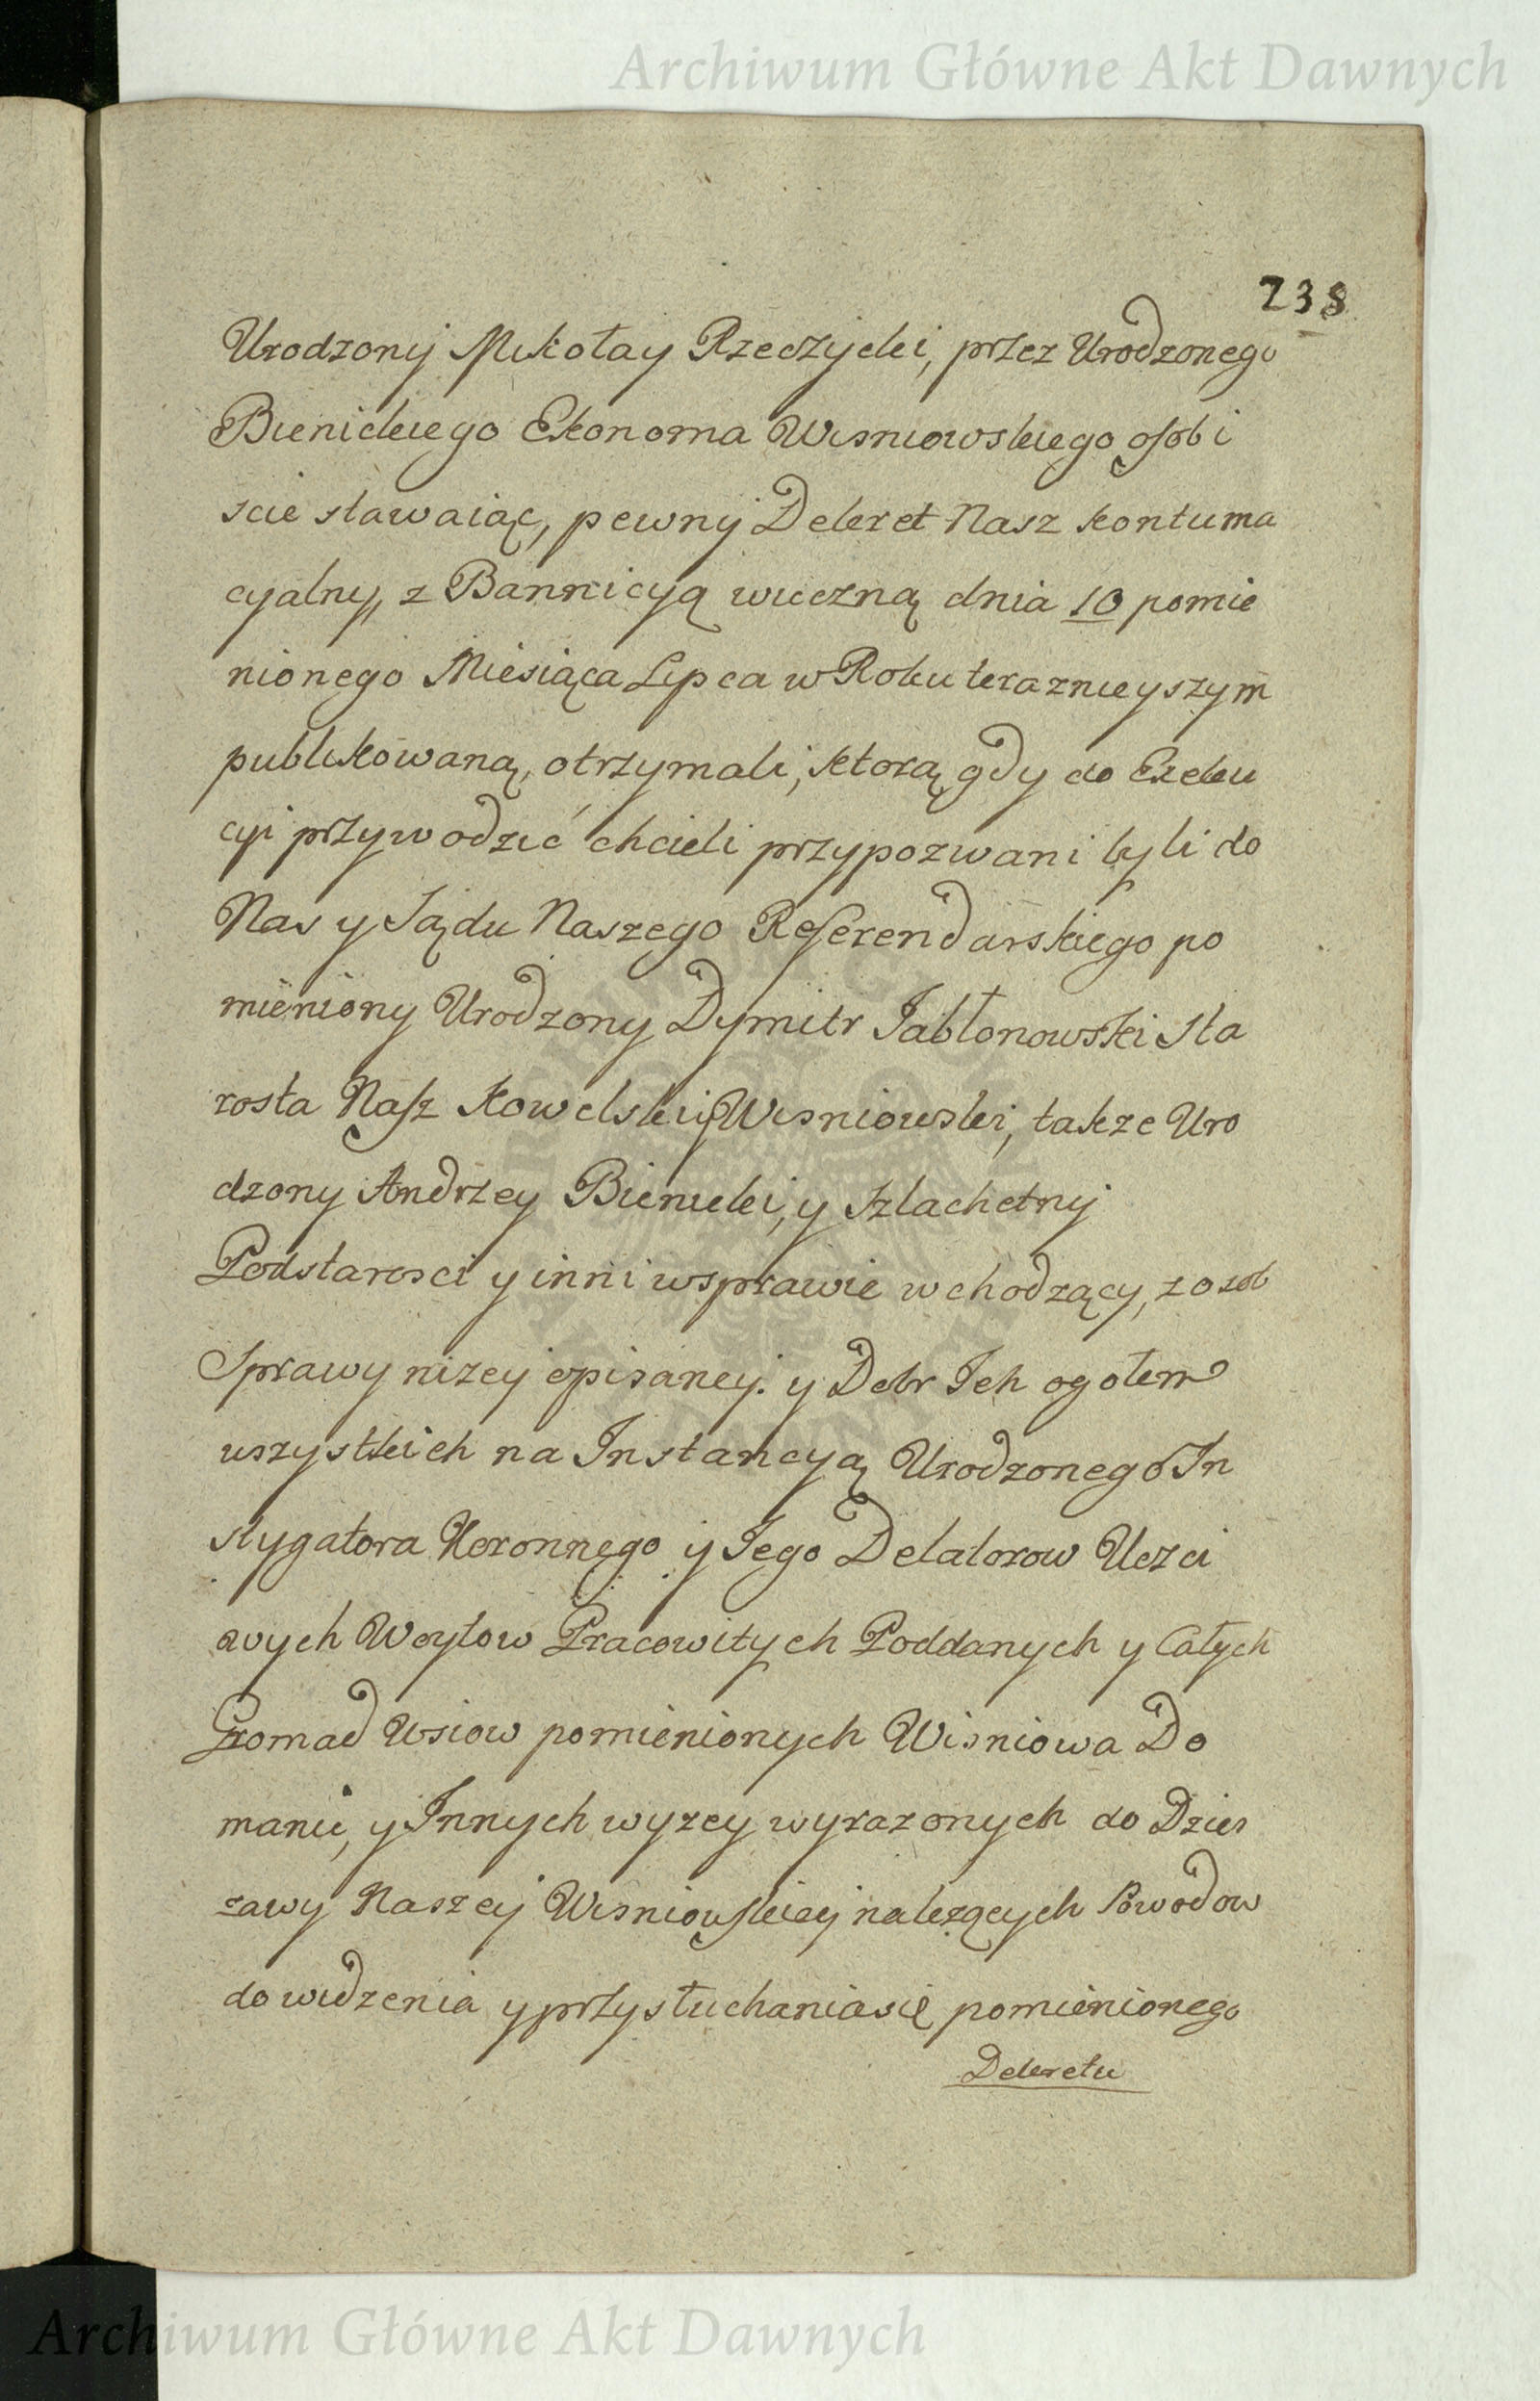 Archiwum Główne Akt Dawnych
238
Urodzony Mikołay Rzeczycki, przez Urodzonego
Bienickiego Ekonoma Wisniowskiego osobi
scie stawaiąc, pewny Dekret Nasz kontuma
cyalny, z Bannicyą wieczną dnia 10 pomie
nionego Miesiąca Lipca w Roku teraznieyszym
publikowaną, otrzymali, ktorą gdy do Exeku
cyi przywodzić chcieli przypozwani byli do
Nas y Sądu Naszego Referendarskiego po
mieniony Urodzony Dymitr Jabłonowski Sta
rosta Nasz Kowelski y Wisniowski, takze Uro
dzony Andrzey Bienicki, y Szlachetny
Podstarosci y inni w sprawie wchodzący, z osob
Sprawy nizey opisaney. y Dobr Ich ogołem
wszystkich na Instancyą Urodzonego In
stygatora Koronnego y Jego Delatorow Uczci
wych Woytow Pracowitych Poddanych y Całych
Gromad Wsiow pomienionych Wisniowa Do
manie, y Innych wyzey wyrazonych do Dzier
zawy Naszey Wisniowskiey nalezących Powodow
do widzenia y przysłuchania się pomienionego
Dekretu
Archiwum Główne Akt Dawnych